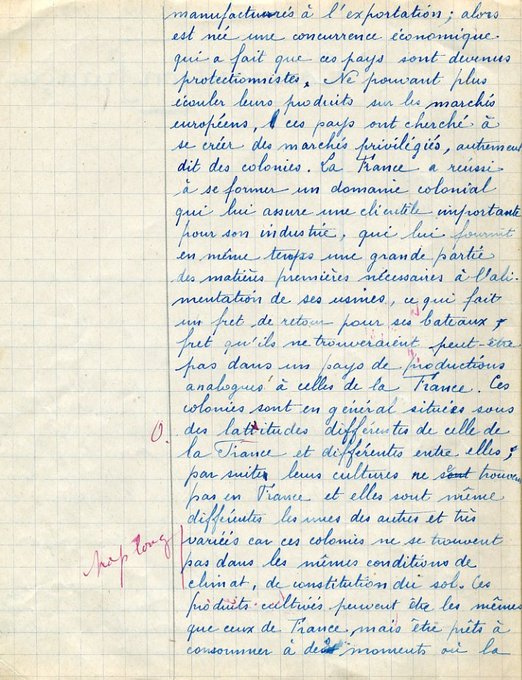 manufacturés à l'exportation; alors
est née une concurrence économique
qui a fait que ces pays sont devenus
protectionnistes. Ne pouvant plus
écouler leurs produits sur les marchés
européens, ces pays ont cherché à
se créer des marchés privilégiés, autrement
dit des colonies. La France a réussi
à se former un domaine colonial
qui lui assure une clientèle importante
pour son industrie, qui lui fournit
en même temps une grande partie
des matières premières nécessaires à l'ali-
mentation de ses usines, ce qui fait
un fret de retour pour ses bateaux,
fret qu'ils ne trouveraient peut-être
pas dans un pays de productions
analogues à celles de la France. Ces
colonies sont en général situées sous
O. des lattitudes différentes de celle de
la France et différentes entre elles,
par suite leurs cultures ne sont trouvent
pas en France et elles sont même
différentes les unes des autres et très
variées car ces colonies ne se trouvent
trop long pas dans les mêmes conditions de
climat, de constitution du sol. Ces
produits cultivés peuvent être les mêmes
que ceux de France mais être prêts à
consommer à des moments où la